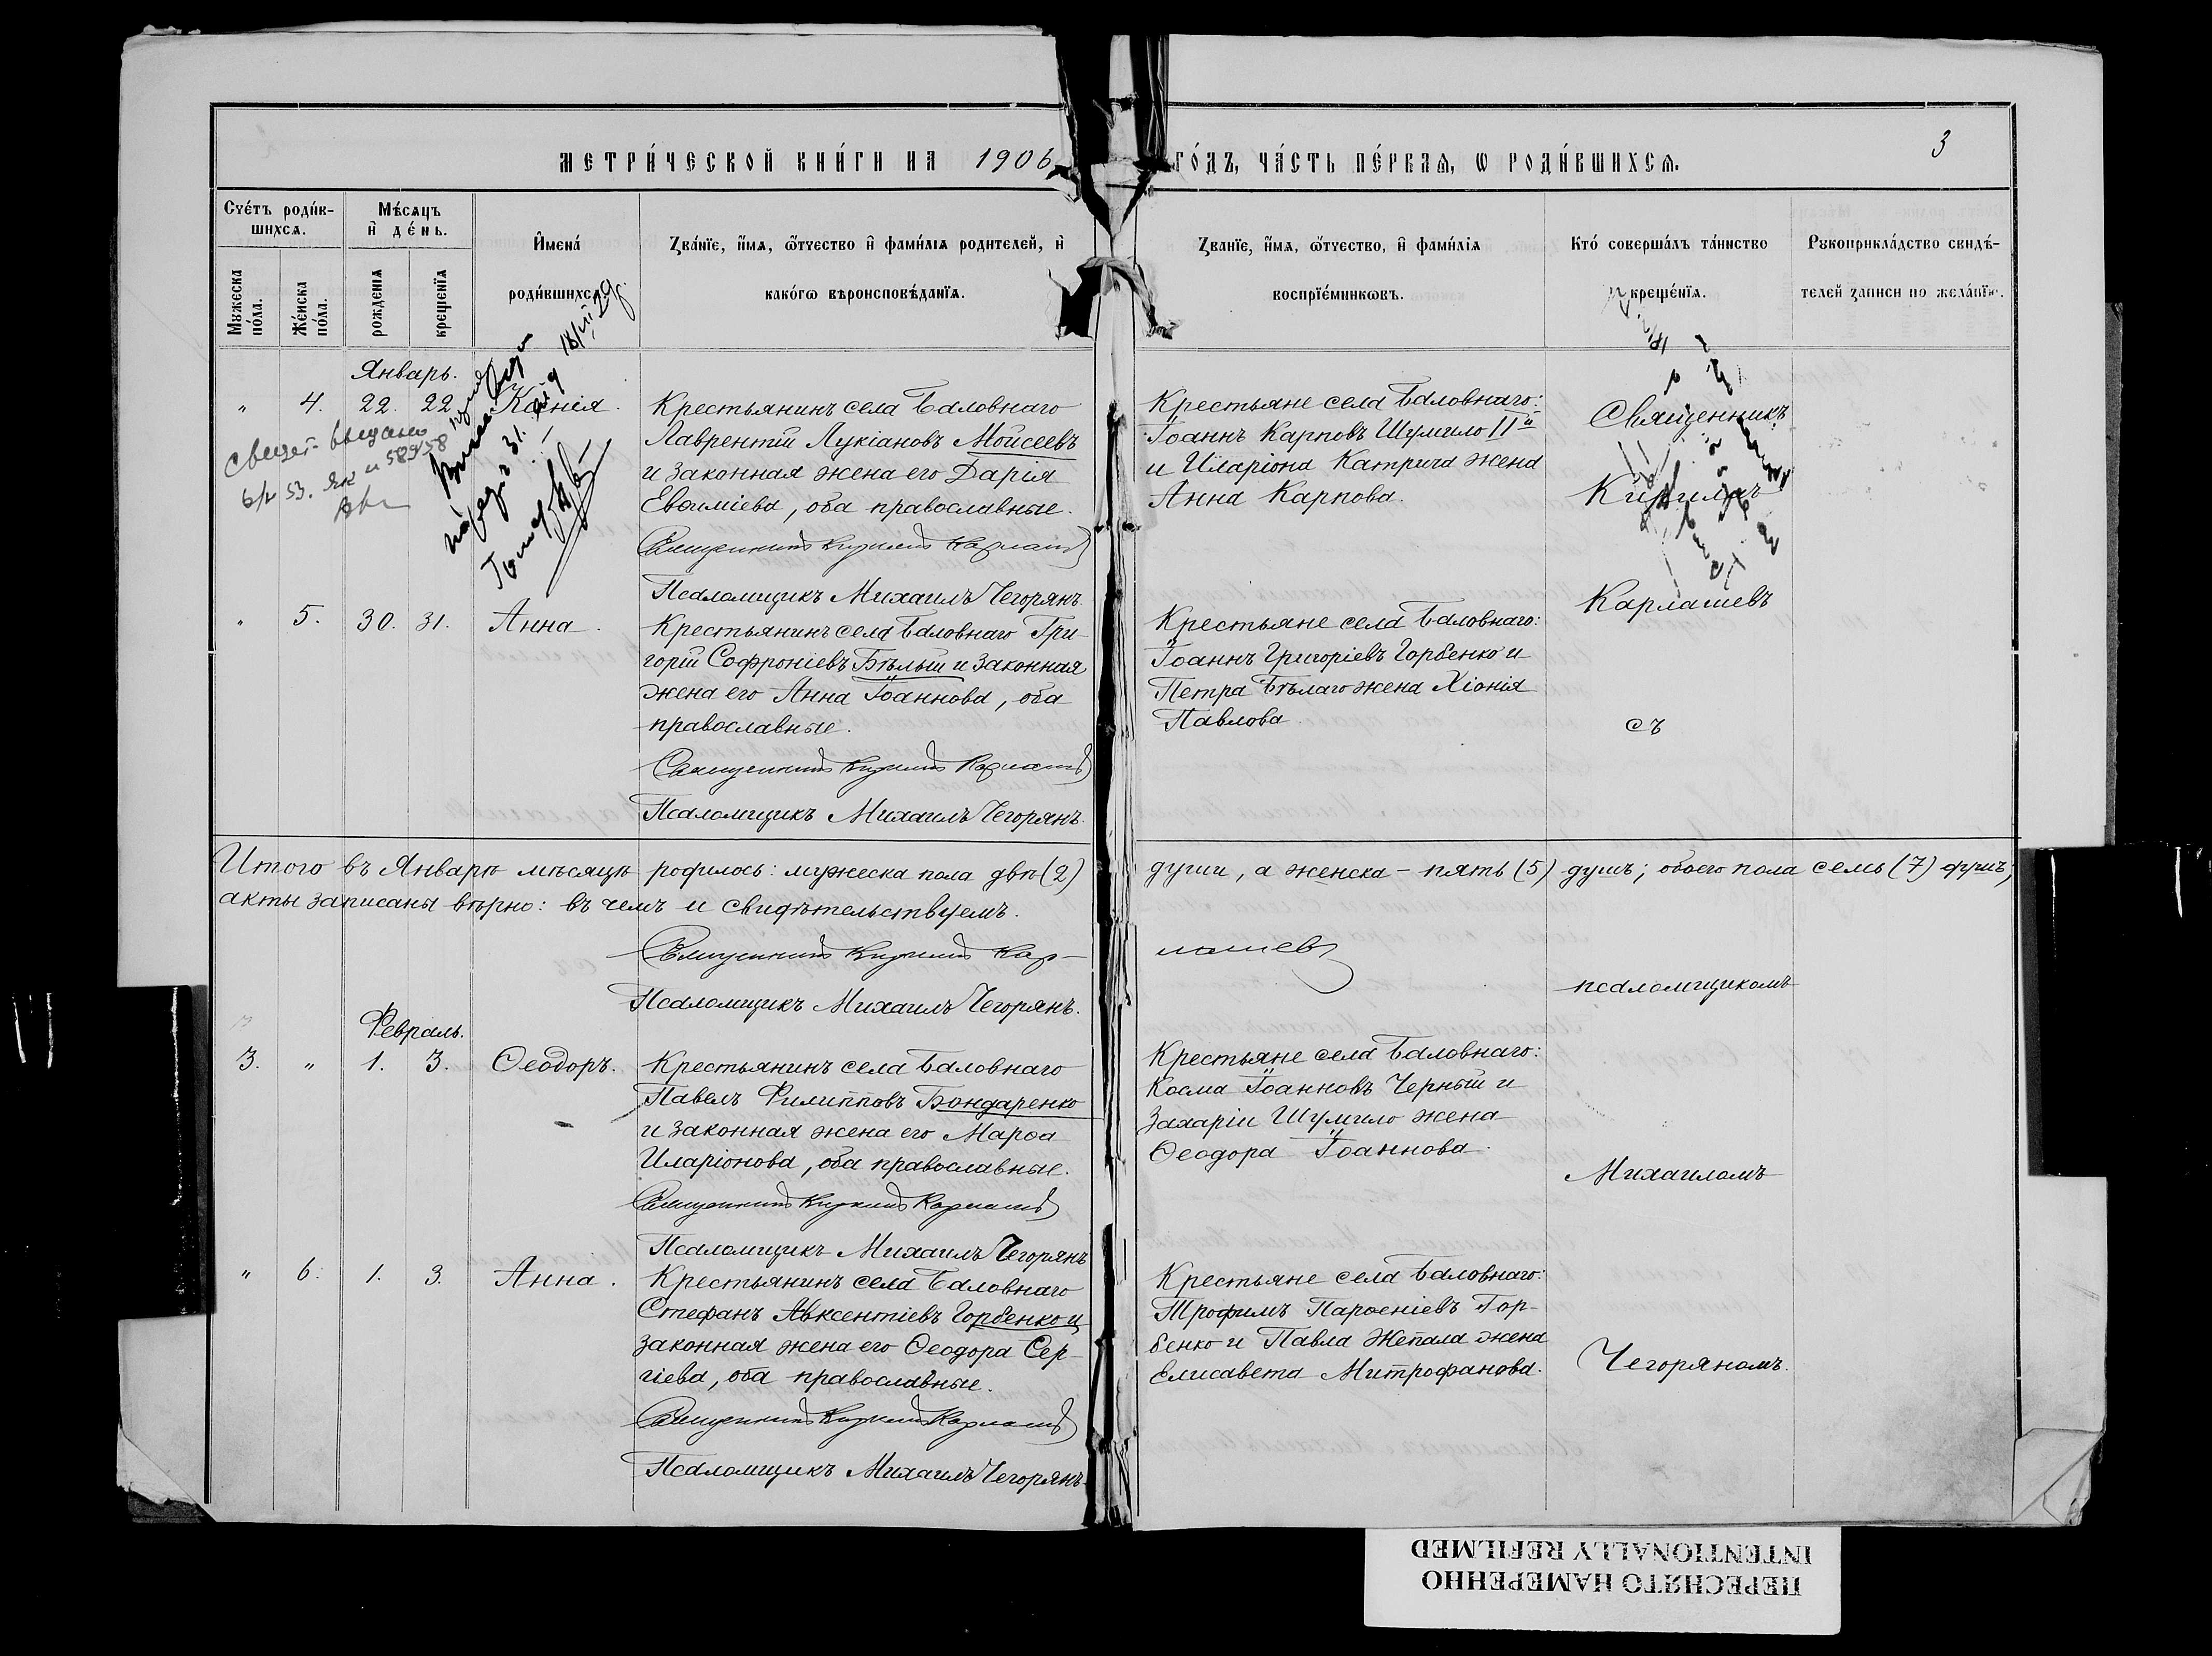 МЕТРИ́ЧЕСКОЙ КНИ́ГИ НА 1906 ГО́ДЪ, ЧА́СТЬ ПЕ́РВАЯ, Ѡ РОДИ́ВШИХСЯ.
3
Сче́тъ роди́в-
шихся.
Мѣ́сяцъ
и҆ де́нь.
Мужеска по́ла.
Же́нска по́ла.
рожденія
крещенїя
И҆мена́
роди́вшихся.
Ꙁва́нїе, и҆́мя, ѻ҆́тчество и҆ фами́лїя родителей, и҆
како́гѡ вѣроисповѣ́данїя.
Ꙁванїе, и҆́мя, ѻ҆́тчество, и҆ фами́лїя
воспрїе́мниковъ.
Кто́ соверша́лъ та́инство
креще́нїя.
Рукоприкла́дство свидѣ́-
телей ꙁаписи по жела́нїю.
Январь.
" 4. 22. 22. Ксенія.
Крестьянинъ села Баловнаго
Лаврентій Лукіановъ Мойсеевъ
и законная жена его Дарія
Евѳиміева, оба православные.
Священникъ Кириллъ Карлашевъ
Псаломщикъ Михаилъ Чегорянъ.
Крестьяне села Баловнаго:
Іоаннъ Карповъ Шумило ІІй
и Иларіона Катрича жена
Анна Карпова.
Священникъ
Кириллъ
Карлашевъ
съ
псаломщикомъ
Михаиломъ
Чегоряномъ.
18/VII 29
" 5. 30. 31. Анна.
Крестьянинъ села Баловнаго Гри-
горій Софроніевъ Бѣлый и законная
жена его Анна Іоаннова, оба
православные.
Священникъ Кириллъ Карлашевъ
Псаломщикъ Михаилъ Чегорянъ.
Крестьяне села Баловнаго:
Іоаннъ Григоріевъ Горбенко и
Петра Бѣлаго жена Хіонія
Павлова.
Итого въ Январѣ мѣсяцѣ родилось: мужеска пола двѣ (2) души, а женска - пять (5) душъ; обоего пола семь (7) душъ;
акты записаны вѣрно: въ чемъ и свидѣтельствуемъ.
Священникъ Кириллъ Кар-лашевъ
Псаломщикъ Михаилъ Чегорянъ.
Февраль.
3. " 1. 3. Ѳеодоръ.
Крестьянинъ села Баловнаго
Павелъ Филипповъ Бондаренко
и законная жена его Марѳа
Иларіонова, оба православные.
Священникъ Кириллъ Карлашевъ
Псаломщикъ Михаилъ Чегорянъ
Крестьяне села Баловнаго:
Косма Іоанновъ Черный и
Захаріи Шумило жена
Ѳеодора Іоаннова.
" 6. 1. 3. Анна.
Крестьянинъ села Баловнаго
Стефанъ Авксентіевъ Горбенко и
законная жена его Ѳеодора Сер-
гіева, оба православные.
Священникъ Кириллъ Карлашевъ
Псаломщикъ Михаилъ Чегорянъ.
Крестьяне села Баловнаго:
Трофимъ Парѳеніевъ Гор-
бенко и Павла Жепала жена
Елисавета Митрофанова.
ПЕРЕСНЯТО НАМЕРЕННО
INTENTIONALLY REFILMED